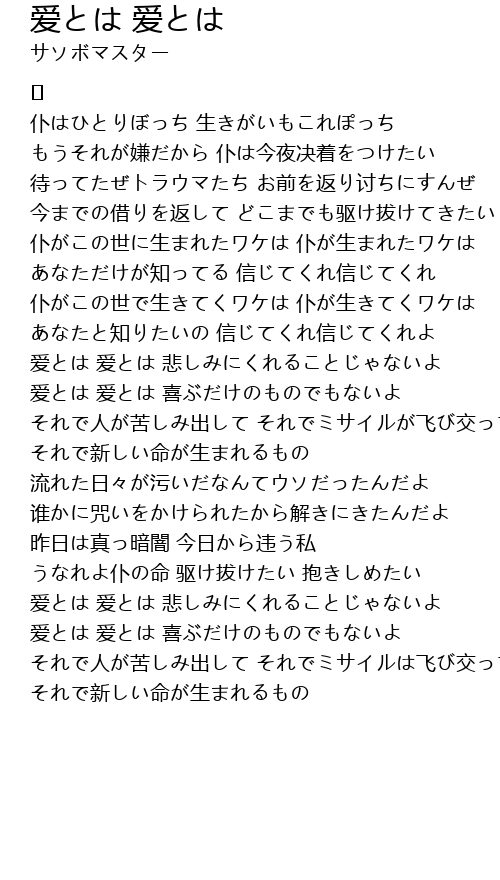 爱とは 爱とは
サソボマスター
仆はひとりぼっち 生きがいもこれぽっち
もうそれが嫌だから 仆は今夜决着をつけたい
待ってたぜトラウマたち お前を返り讨ちにすんぜ
今までの借りを返して どこまでも驱け抜けてきたい
仆がこの世に生まれたワケは 仆が生まれたワケは
あなただけが知ってる 信じてくれ信じてくれ
仆がこの世で生きてくワケは 仆が生きてくワケは
あなたと知りたいの 信じてくれ信じてくれよ
爱とは 爱とは 悲しみにくれることじゃないよ
爱とは 爱とは 喜ぶだけのものでもないよ
それで人が苦しみ出して それでミサイルが飞び交っ
それで新しい命が生まれるもの
流れた日々が污いだなんてウソだったんだよ
谁かに咒いをかけられたから解きにきたんだよ
昨日は真っ暗闇 今日から违う私
うなれよ仆の命 驱け抜けたい 抱きしめたい
爱とは 爱とは 悲しみにくれることじゃないよ
爱とは 爱とは 喜ぶだけのものでもないよ
それで人が苦しみ出して それでミサイルは飞び交っ
それで新しい命が生まれるもの